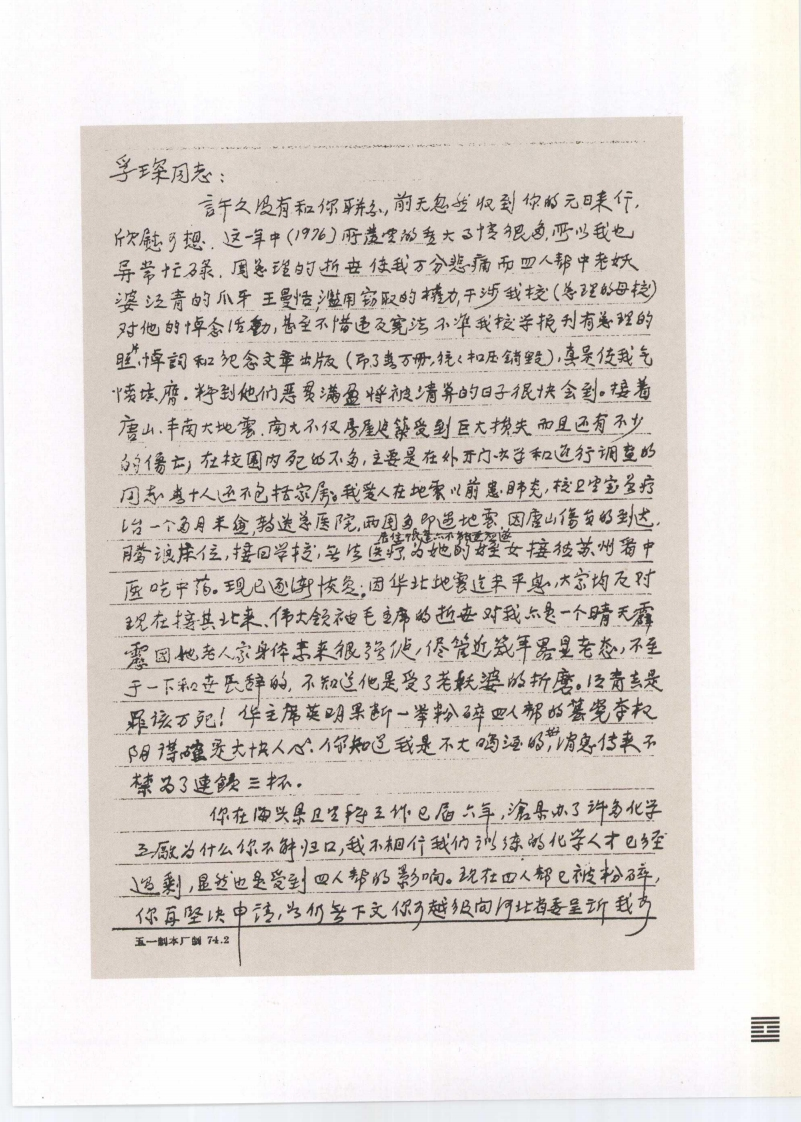 孚琛同志：
許久沒有和你联系，前天忽然收到你的元旦来信，
欣慰可想．这一年中（1976）所發生的重大事情很多，所以我也
异常忙碌．周总理的逝世使我万分悲痛而四人帮中老妖
婆江青的爪牙王曼恬，滥用窃取的権力，干涉我校（总理的母校）
对他的悼念活動，甚至不惜违反宪法不准我校学报刊有总理的
照片，悼詞和纪念文章出版（印了数万册，统统扣压銷毁），真是使我气
愤填膺．料到他们恶贯满盈将被清算的日子很快会到。接着
唐山、丰南大地震．南大不仅房屋建築受到巨大损失而且还有不少
的傷亡，在校園内死的不多，主要是在外开门办学和进行調查的
同志数十人还不包括家属。我爱人在地震以前患肺炎，校卫生室医疗
治一个多月未愈，转送总医院，两周多即遇地震，因唐山傷员的到达，
居住
腾讓床位，接回学校，无法医疗，为她的姪女接彼苏州看中
医吃中药。现已逐渐恢复，因华北地震迄未平息，大家均反对
现在接其北来．伟大领袖毛主席的逝世对我亦是一个晴天霹
靂因他老人家身体素来很强健，尽管近几年畧呈老态，不至
于一下和世長辞的，不知道他是受了老妖婆的折磨。江青真是
罪该万死！华主席英明果断一举粉碎四人帮的篡党夺权
阴謀確是大快人心．你知道我是不大喝酒的，消息传来不
禁为了連飲三杯。
你在海兴县卫生科工作已届六年，滄县办了許多化学
工廠为什么你不能归口，我不相信我们训练的化学人才已经
过剩，显然也是受到四人帮的影响。现在四人帮已被粉碎，
你再坚决申請，当仍無下文你可越级向河北省委呈訴我可
五一制本厂制 74.2